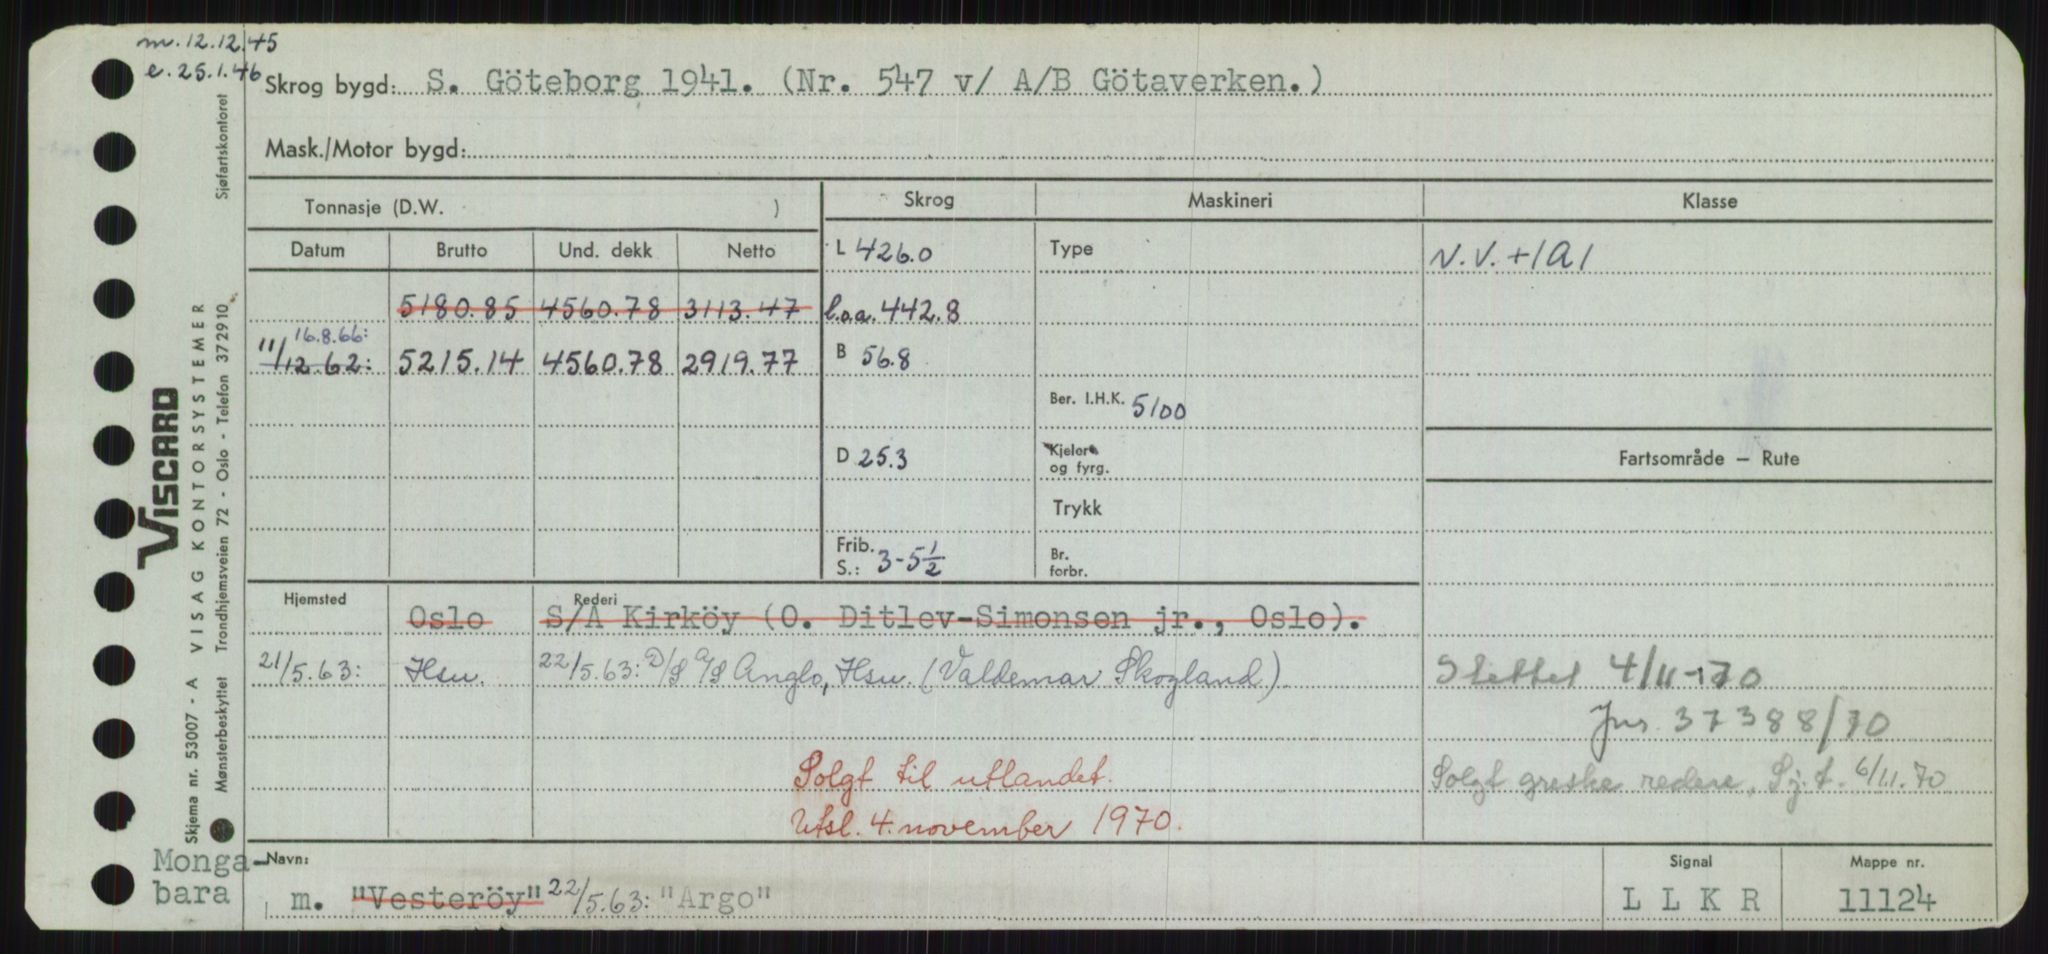 m. 12.12.45
e. 25.1.46
Skrog bygd: S. Göteborg 1941. (Nr. 547 v/ A/B Götaverken.)
Mask./Motor bygd:
Tonnasje (D.W. )
Skrog
Maskineri
Klasse
Datum Brutto Und. dekk Netto
L 426.0
Type
N.V. +1A1
5180.85 4560.78 3113.47
l.o.a. 442.8
16.8.66:
11/12.62: 5215.14 4560.78 2919.77
B 56.8
Ber. I.H.K. 5100
D 25.3
Kjeler
og fyrg.
Fartsområde – Rute
Trykk
Frib.
S.: 3-5½
Br.
forbr.
Hjemsted
Rederi
Oslo S/A Kirköy (O. Ditlev-Simonsen jr., Oslo).
21/5.63: Hsu. 22/5.63: D/S A/S Anglo, Hsu. (Valdemar Skogland)
Slettet 4/11-70
Jnr. 37388/70
Solgt til utlandet.
Utsl. 4. november 1970.
Solgt greske redere, Sj.t. 6/11.70
Monga-
bara
Navn:
m. "Vesteröy" 22/5.63: "Argo"
Signal
L L K R
Mappe nr.
11124
VISCARD
Skjema nr. 53007 - A VISAG KONTORSYSTEMER
Mønsterbeskyttet Trondhjemsveien 72 - Oslo - Telefon 372910
Sjøfartskontoret